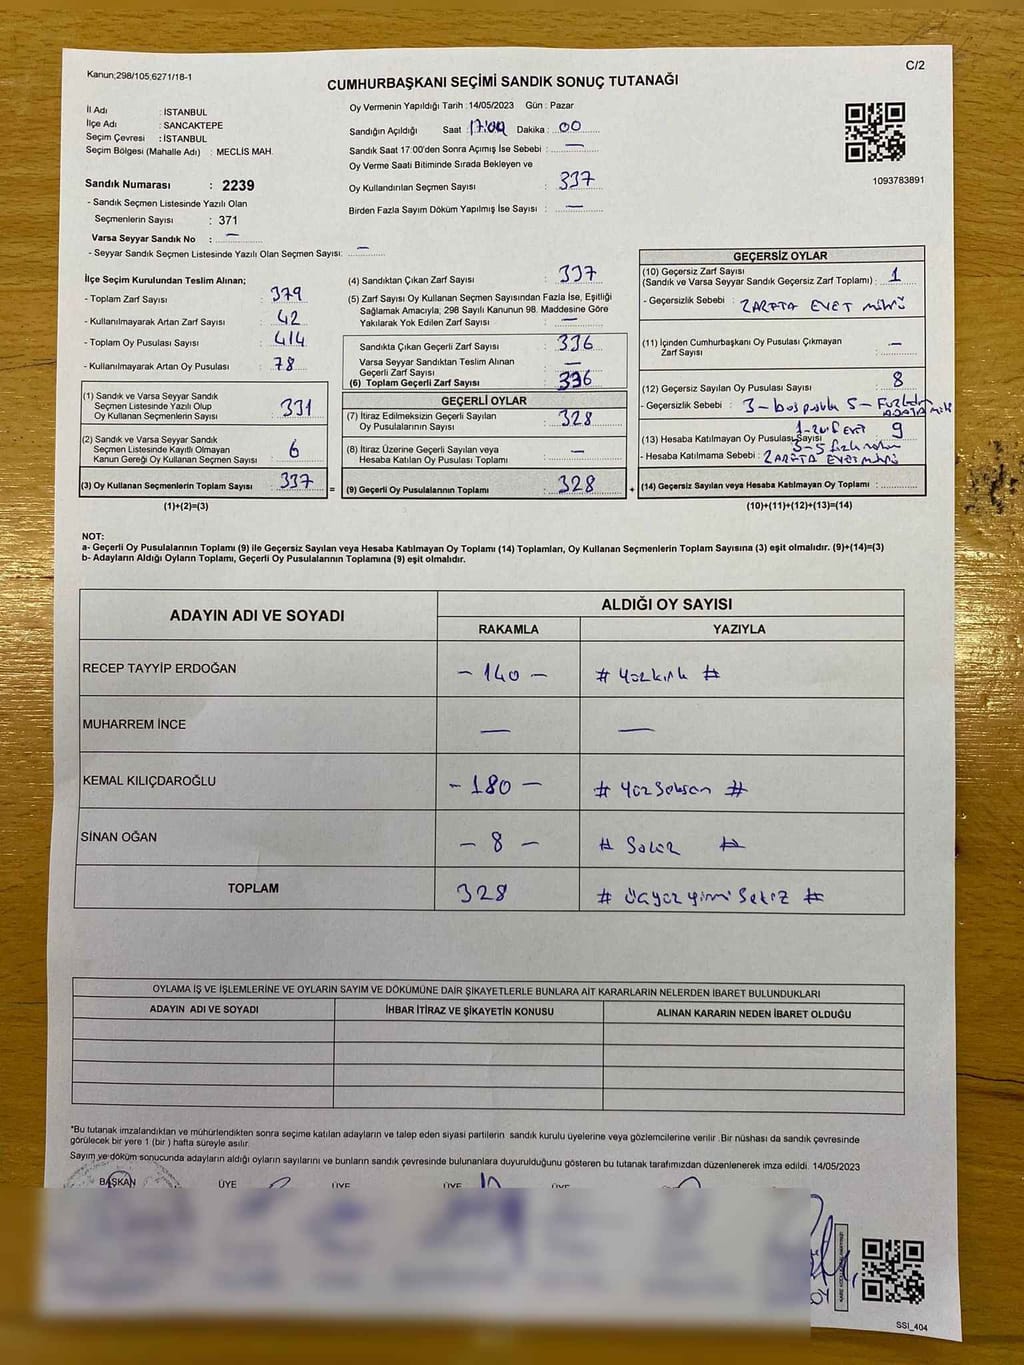 Kanun;298/105,6271/18-1
C/2
CUMHURBAŞKANI SEÇİMİ SANDIK SONUÇ TUTANAĞI
İl Adı : İSTANBUL
İlçe Adı : SANCAKTEPE
Seçim Çevresi : İSTANBUL
Seçim Bölgesi (Mahalle Adı) : MECLİS MAH.
Sandık Numarası : 2239
- Sandık Seçmen Listesinde Yazılı Olan
Seçmenlerin Sayısı : 371
Varsa Seyyar Sandık No : —
- Seyyar Sandık Seçmen Listesinde Yazılı Olan Seçmen Sayısı: —
Oy Vermenin Yapıldığı Tarih :14/05/2023 Gün : Pazar
Sandığın Açıldığı Saat : 17:00 Dakika : 00
Sandık Saat 17:00'den Sonra Açımış İse Sebebi : —
Oy Verme Saati Bitiminde Sırada Bekleyen ve
Oy Kullandırılan Seçmen Sayısı : 337
Birden Fazla Sayım Döküm Yapılmış İse Sayısı : —
1093783891
İlçe Seçim Kurulundan Teslim Alınan;
- Toplam Zarf Sayısı : 379
- Kullanılmayarak Artan Zarf Sayısı : 42
- Toplam Oy Pusulası Sayısı : 414
- Kullanılmayarak Artan Oy Pusulası : 78
(1) Sandık ve Varsa Seyyar Sandık
Seçmen Listesinde Yazılı Olup
Oy Kullanan Seçmenlerin Sayısı : 331
(2) Sandık ve Varsa Seyyar Sandık
Seçmen Listesinde Kayıtlı Olmayan
Kanun Gereği Oy Kullanan Seçmen Sayısı : 6
(3) Oy Kullanan Seçmenlerin Toplam Sayısı : 337 =
(1)+(2)=(3)
(4) Sandıktan Çıkan Zarf Sayısı : 337
(5) Zarf Sayısı Oy Kullanan Seçmen Sayısından Fazla İse, Eşitliği
Sağlamak Amacıyla, 298 Sayılı Kanunun 98. Maddesine Göre
Yakılarak Yok Edilen Zarf Sayısı : —
Sandıkta Çıkan Geçerli Zarf Sayısı : 336
Varsa Seyyar Sandıktan Teslim Alınan
Geçerli Zarf Sayısı : —
(6) Toplam Geçerli Zarf Sayısı : 336
GEÇERLİ OYLAR
(7) İtiraz Edilmeksizin Geçerli Sayılan
Oy Pusulalarının Sayısı : 328
(8) İtiraz Üzerine Geçerli Sayılan veya
Hesaba Katılan Oy Pusulası Toplamı : —
(9) Geçerli Oy Pusulalarının Toplamı : 328 +
GEÇERSİZ OYLAR
(10) Geçersiz Zarf Sayısı
(Sandık ve Varsa Seyyar Sandık Geçersiz Zarf Toplamı) : 1
- Geçersizlik Sebebi : ZARFTA EVET MÜHRÜ
(11) İçinden Cumhurbaşkanı Oy Pusulası Çıkmayan
Zarf Sayısı : —
(12) Geçersiz Sayılan Oy Pusulası Sayısı : 8
- Geçersizlik Sebebi : 3 - boş pusula 5 -
(13) Hesaba Katılmayan Oy Pusulası Sayısı : 9
- Hesaba Katılmama Sebebi : ZARFTA EVET MÜHRÜ
(14) Geçersiz Sayılan veya Hesaba Katılmayan Oy Toplamı :
(10)+(11)+(12)+(13)=(14)
NOT:
a- Geçerli Oy Pusulalarının Toplamı (9) ile Geçersiz Sayılan veya Hesaba Katılmayan Oy Toplamı (14) Toplamları, Oy Kullanan Seçmenlerin Toplam Sayısına (3) eşit olmalıdır. (9)+(14)=(3)
b- Adayların Aldığı Oyların Toplamı, Geçerli Oy Pusulalarının Toplamına (9) eşit olmalıdır.
ADAYIN ADI VE SOYADI ALDIĞI OY SAYISI
RAKAMLA YAZIYLA
RECEP TAYYİP ERDOĞAN - 140 - # Yüzkırk #
MUHARREM İNCE — —
KEMAL KILIÇDAROĞLU - 180 - # Yüzseksen #
SİNAN OĞAN - 8 - # Sekiz #
TOPLAM 328 # Üçyüzyirmisekiz #
OYLAMA İŞ VE İŞLEMLERİNE VE OYLARIN SAYIM VE DÖKÜMÜNE DAİR ŞİKAYETLERLE BUNLARA AİT KARARLARIN NELERDEN İBARET BULUNDUKLARI
ADAYIN ADI VE SOYADI İHBAR İTİRAZ VE ŞİKAYETİN KONUSU ALINAN KARARIN NEDEN İBARET OLDUĞU
*Bu tutanak imzalandıktan ve mühürlendikten sonra seçime katılan adayların ve talep eden siyasi partilerin sandık kurulu üyelerine veya gözlemcilerine verilir .Bir nüshası da sandık çevresinde
görülecek bir yere 1 (bir ) hafta süreyle asılır.
Sayım ve döküm sonucunda adayların aldığı oyların sayılarını ve bunların sandık çevresinde bulunanlara duyurulduğunu gösteren bu tutanak tarafımızdan düzenlenerek imza edildi. 14/05/2023
BAŞKAN ÜYE ÜYE ÜYE ÜYE
SSI_404